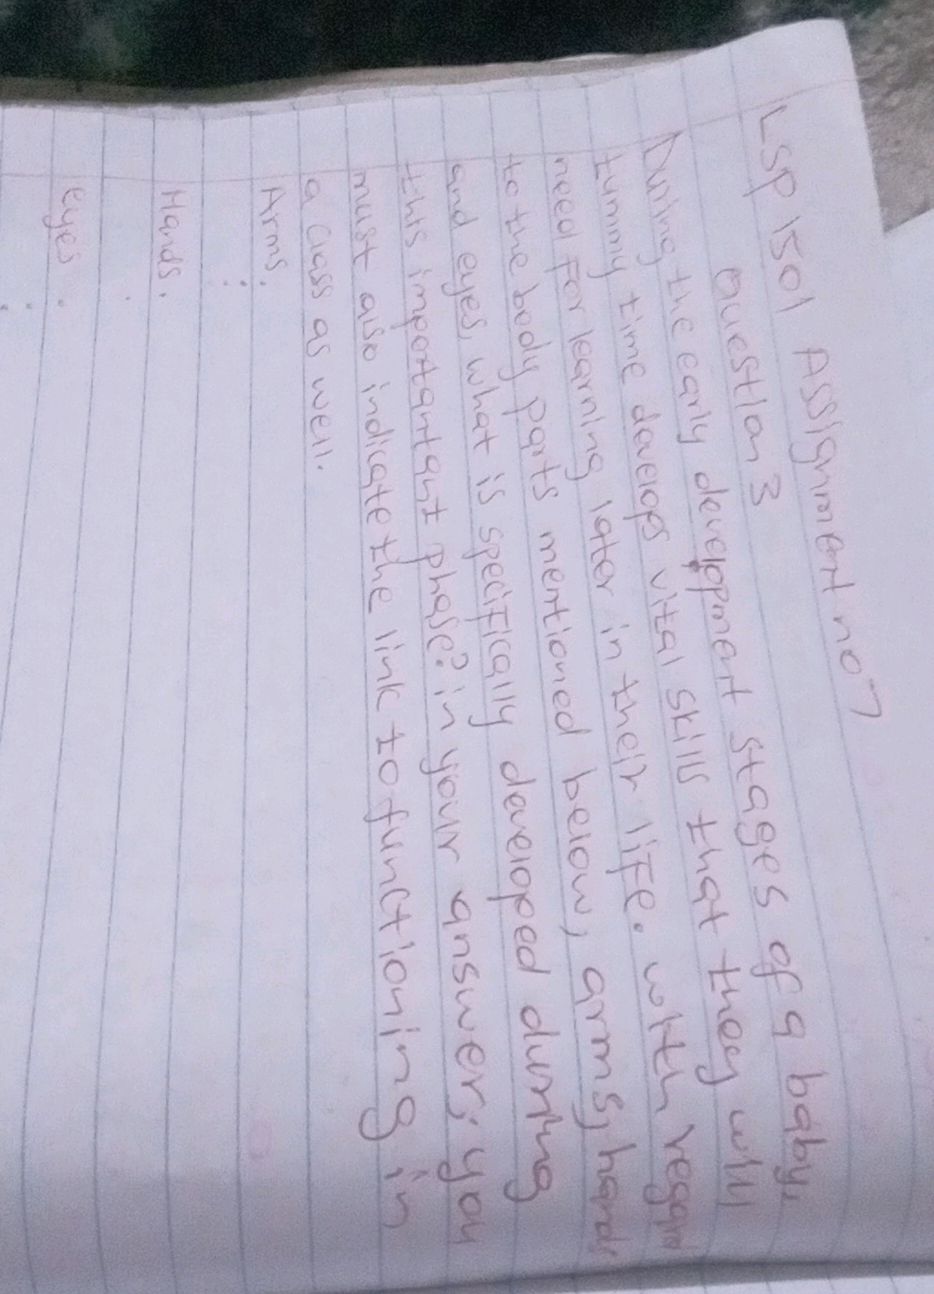 LSP 1501 Assignment no 7
Question 3
During the early development stages of a baby,
tummy time develops vital skills that they will
need for learning later in their life. with regard
to the body parts mentioned below, arms, hands
and eyes, what is specifically developed during
this importantant phase? in your answer, you
must also indicate the link to functioning in
a class as well.
Arms.
Hands.
eyes.